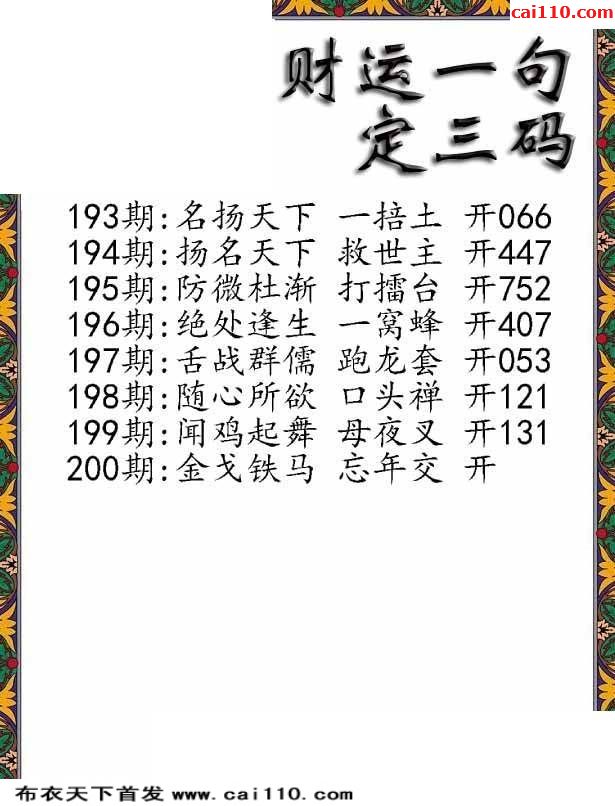 cai110.com
财运一句
定三码
193期:名扬天下 一掊土 开066
194期:扬名天下 救世主 开447
195期:防微杜渐 打擂台 开752
196期:绝处逢生 一窝蜂 开407
197期:舌战群儒 跑龙套 开053
198期:随心所欲 口头禅 开121
199期:闻鸡起舞 母夜叉 开131
200期:金戈铁马 忘年交 开
布衣天下首发 www.cai110.com